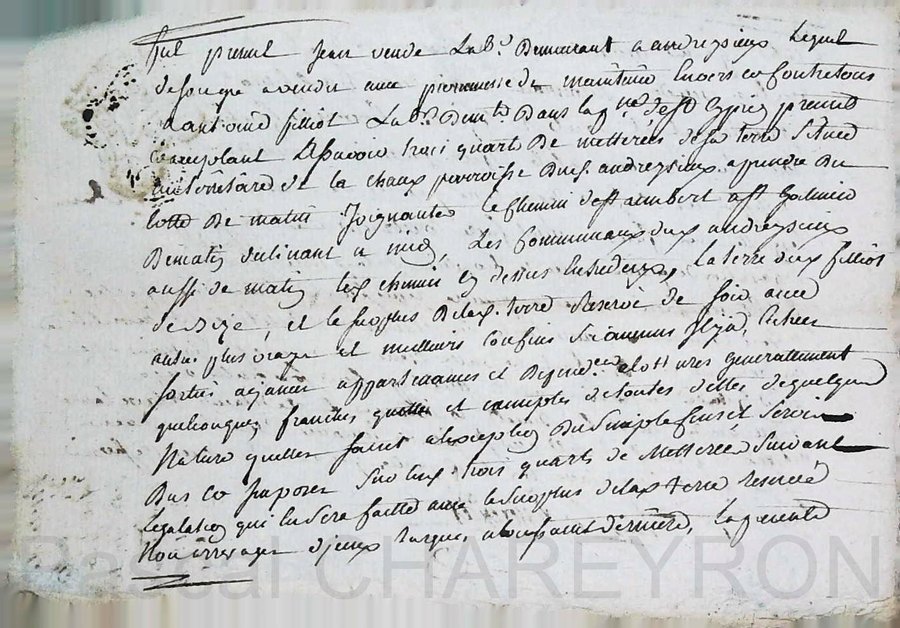 fut present Jean vende Lab.r Demeurant a andrezieux Lequel
de son gre a vendu avec promesse de maintenir Envers et Contre tous
a antoine filliot Lab.r Dem.t Dans la p.sse de St Cyprien present
acceptant a Scavoir trois quart De metterées de sa terre Situee
au territoire de la chaux parroisse Dud. andrezieux a prendre Du
cotté De matin Joignante le Chemin de St rambert a St Galmier
De matin declinant a midy, Les Communaux dud andrezieux
aussi de matin led chemin cy dessus Entredeux, la terre dud filliot
de bize, et le surplus De lad. terre reserve de soir avec
autres plus vrays et meilleurs Confins Si aucuns Il y a, Entrées
sorties aizances appartenances et Dependces clottures generalement
quelconques franches quittes et exemptes de toutes dettes de quelque
Nature quelles soient a l'exception Du Simple Cens et Servis
Dus et Imposes Sur lesd. trois quarts de Metterée Suivant
legalation qui En Sera faitte avec le Surplus de lad. terre reservée
Non arrerages d'jceux Jusques a la toussaint derniere, La presente
Pascal CHAREYRON